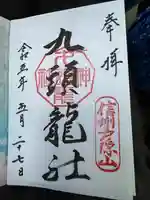 奉拝
信州戸隠山
九頭龍社
令和五年五月二十七日